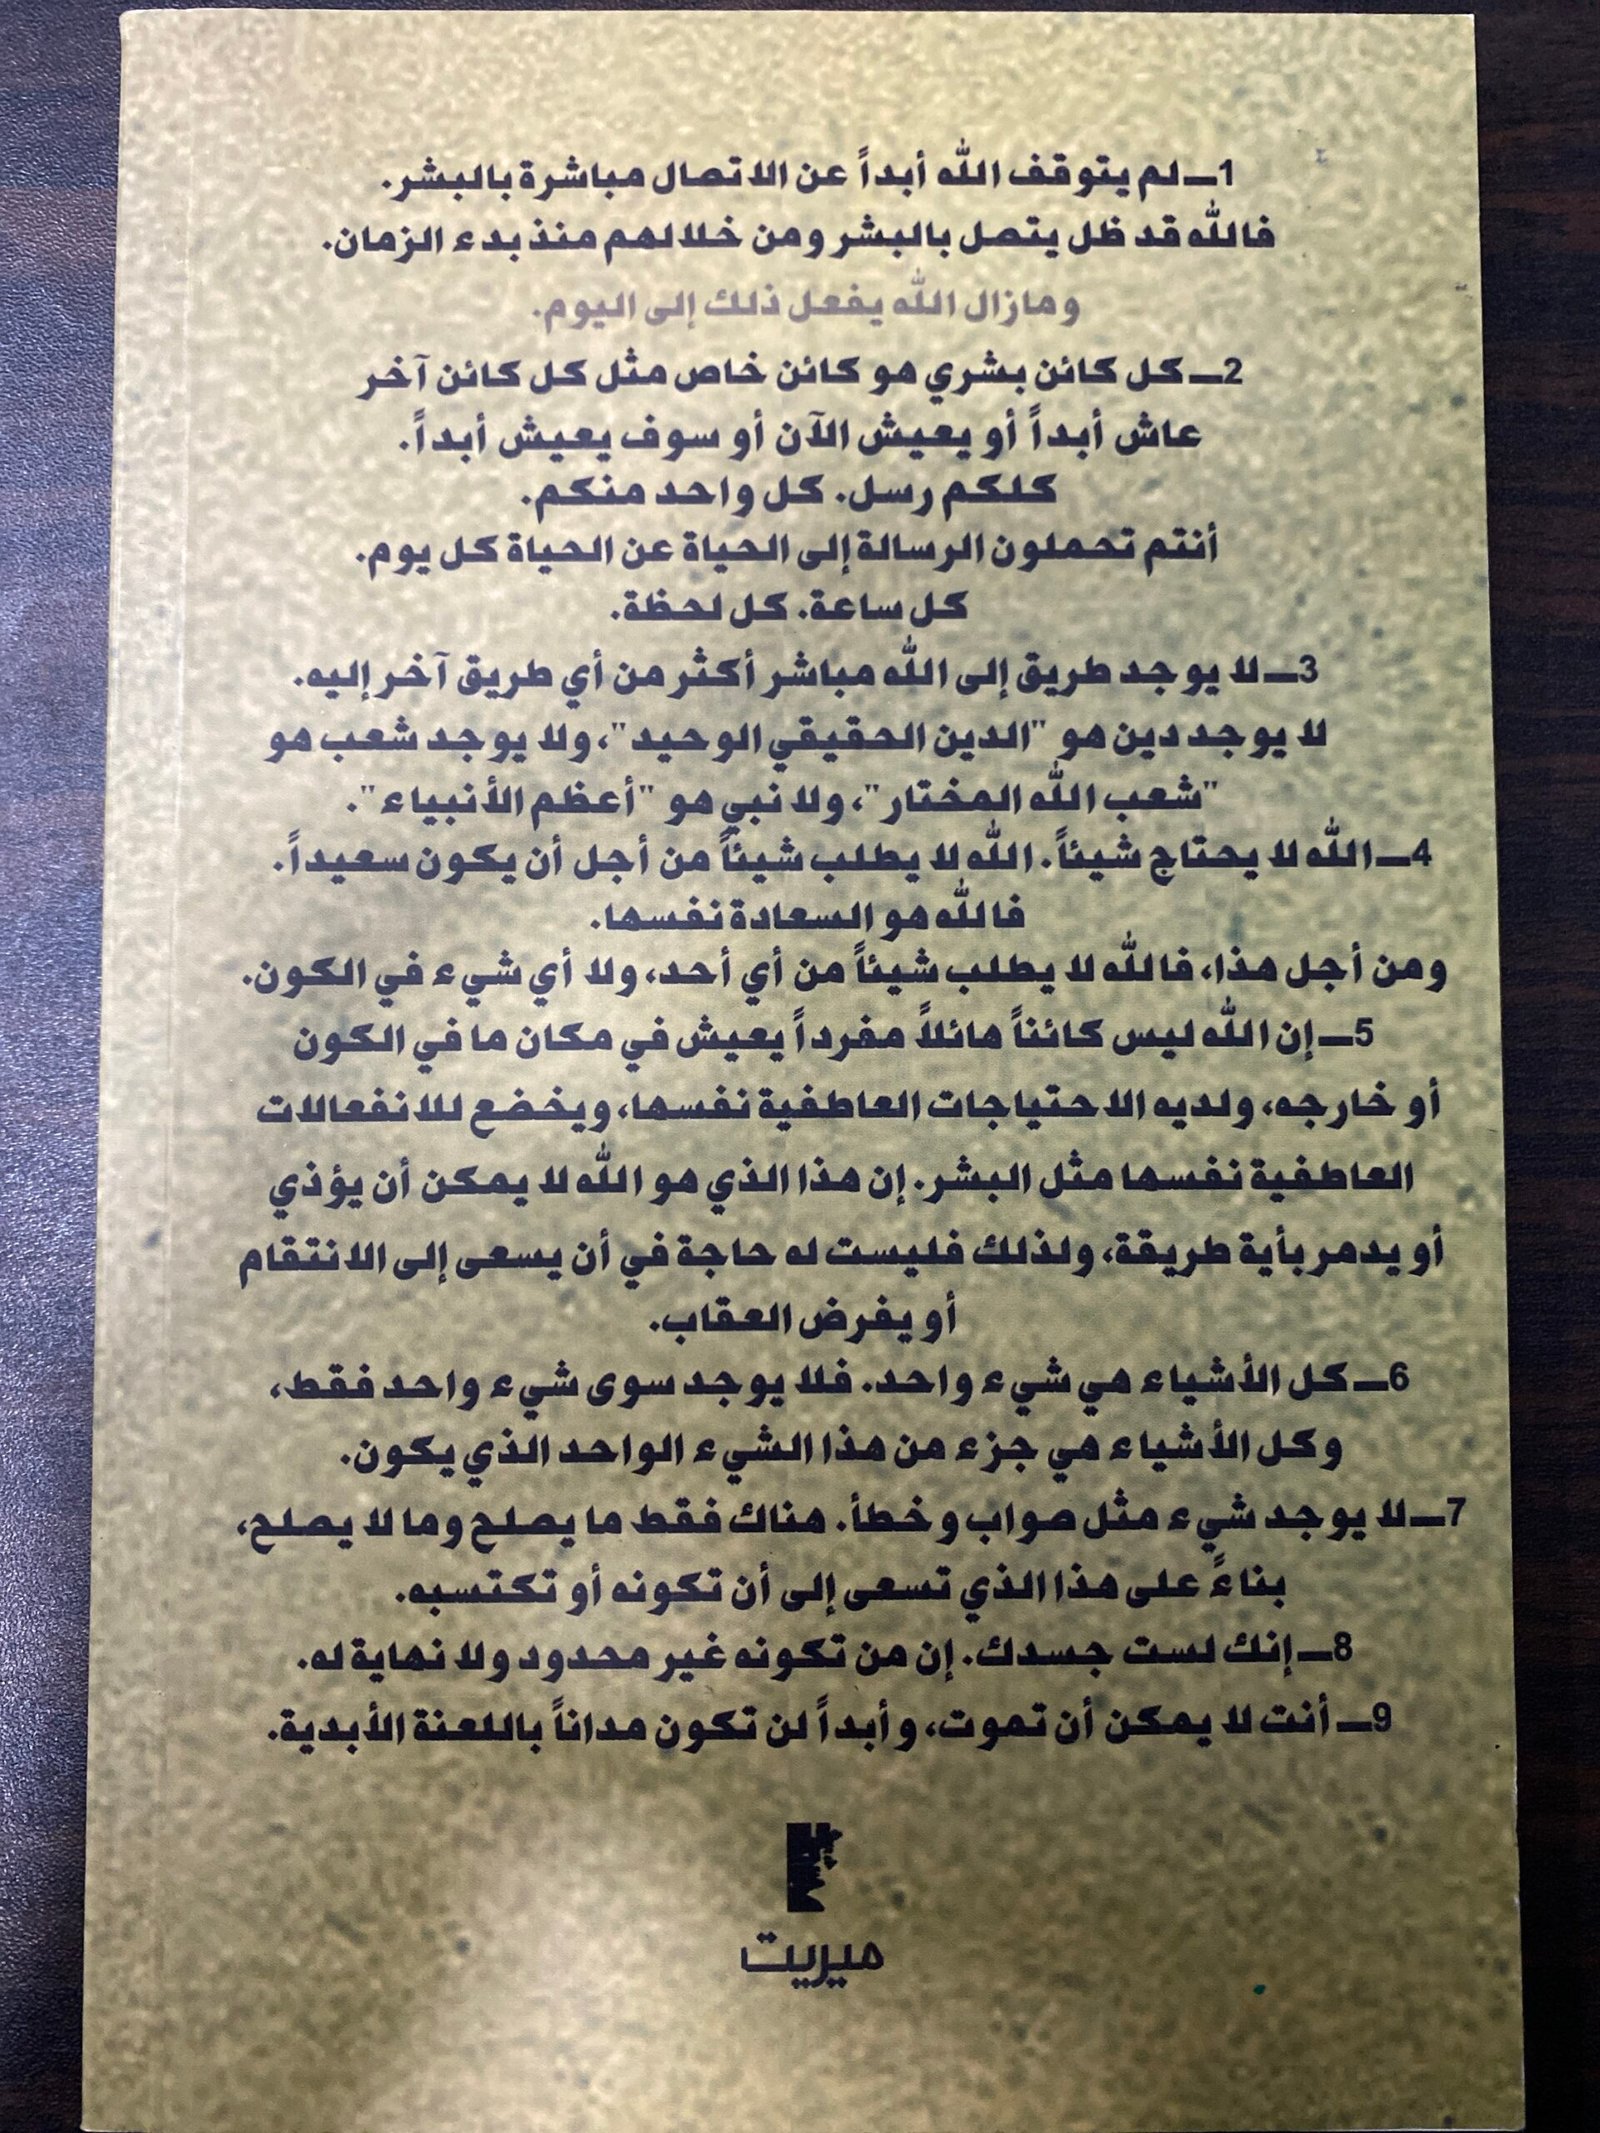 1ـ لم يتوقف الله أبداً عن الاتصال مباشرة بالبشر.
فالله قد ظل يتصل بالبشر ومن خلالهم منذ بدء الزمان.
ومازال الله يفعل ذلك إلى اليوم.
2ـ كل كائن بشري هو كائن خاص مثل كل كائن آخر
عاش أبداً أو يعيش الآن أو سوف يعيش أبداً.
كلكم رسل. كل واحد منكم.
أنتم تحملون الرسالة إلى الحياة عن الحياة كل يوم.
كل ساعة. كل لحظة.
3ـ لا يوجد طريق إلى الله مباشر أكثر من أي طريق آخر إليه.
لا يوجد دين هو "الدين الحقيقي الوحيد"، ولا يوجد شعب هو
"شعب الله المختار"، ولا نبي هو "أعظم الأنبياء".
4ـ الله لا يحتاج شيئاً. الله لا يطلب شيئاً من أجل أن يكون سعيداً.
فالله هو السعادة نفسها.
ومن أجل هذا، فالله لا يطلب شيئاً من أي أحد، ولا أي شيء في الكون.
5ـ إن الله ليس كائناً هائلاً مفرداً يعيش في مكان ما في الكون
أو خارجه، ولديه الاحتياجات العاطفية نفسها، ويخضع للانفعالات
العاطفية نفسها مثل البشر. إن هذا الذي هو الله لا يمكن أن يؤذي
أو يدمر بأية طريقة، ولذلك فليست له حاجة في أن يسعى إلى الانتقام
أو يفرض العقاب.
6ـ كل الأشياء هي شيء واحد. فلا يوجد سوى شيء واحد فقط،
وكل الأشياء هي جزء من هذا الشيء الواحد الذي يكون.
7ـ لا يوجد شيء مثل صواب وخطأ. هناك فقط ما يصلح وما لا يصلح،
بناءً على هذا الذي تسعى إلى أن تكونه أو تكتسبه.
8ـ إنك لست جسدك. إن من تكونه غير محدود ولا نهاية له.
9ـ أنت لا يمكن أن تموت، وأبداً لن تكون مداناً باللعنة الأبدية.
ميريت